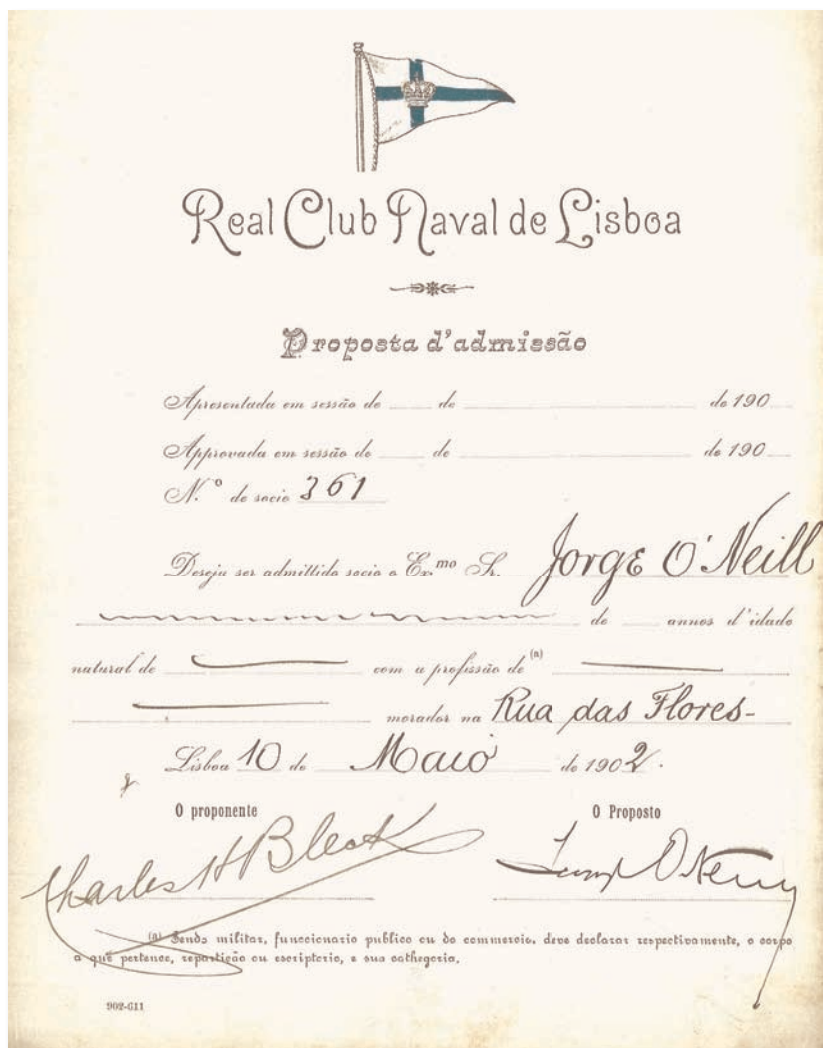 Real Club Naval de Lisboa
Proposta d'admissão
Apresentada em sessão de ___ de ___ de 190
Approvada em sessão de ___ de ___ de 190
N.º de socio 361
Deseja ser admittido socio o Ex.mo Sr. Jorge O'Neill
de ___ annos d'idade
natural de ___ com a profissão de (a) ___
morador na Rua das Flores-
Lisboa 10 de Maio de 1902.
O proponente O Proposto
Charles H Bleck
(a) Sendo militar, funccionario publico ou do commercio, deve declarar respectivamente, o corpo
a que pertence, repartição ou escriptorio, e sua cathegoria.
902-611